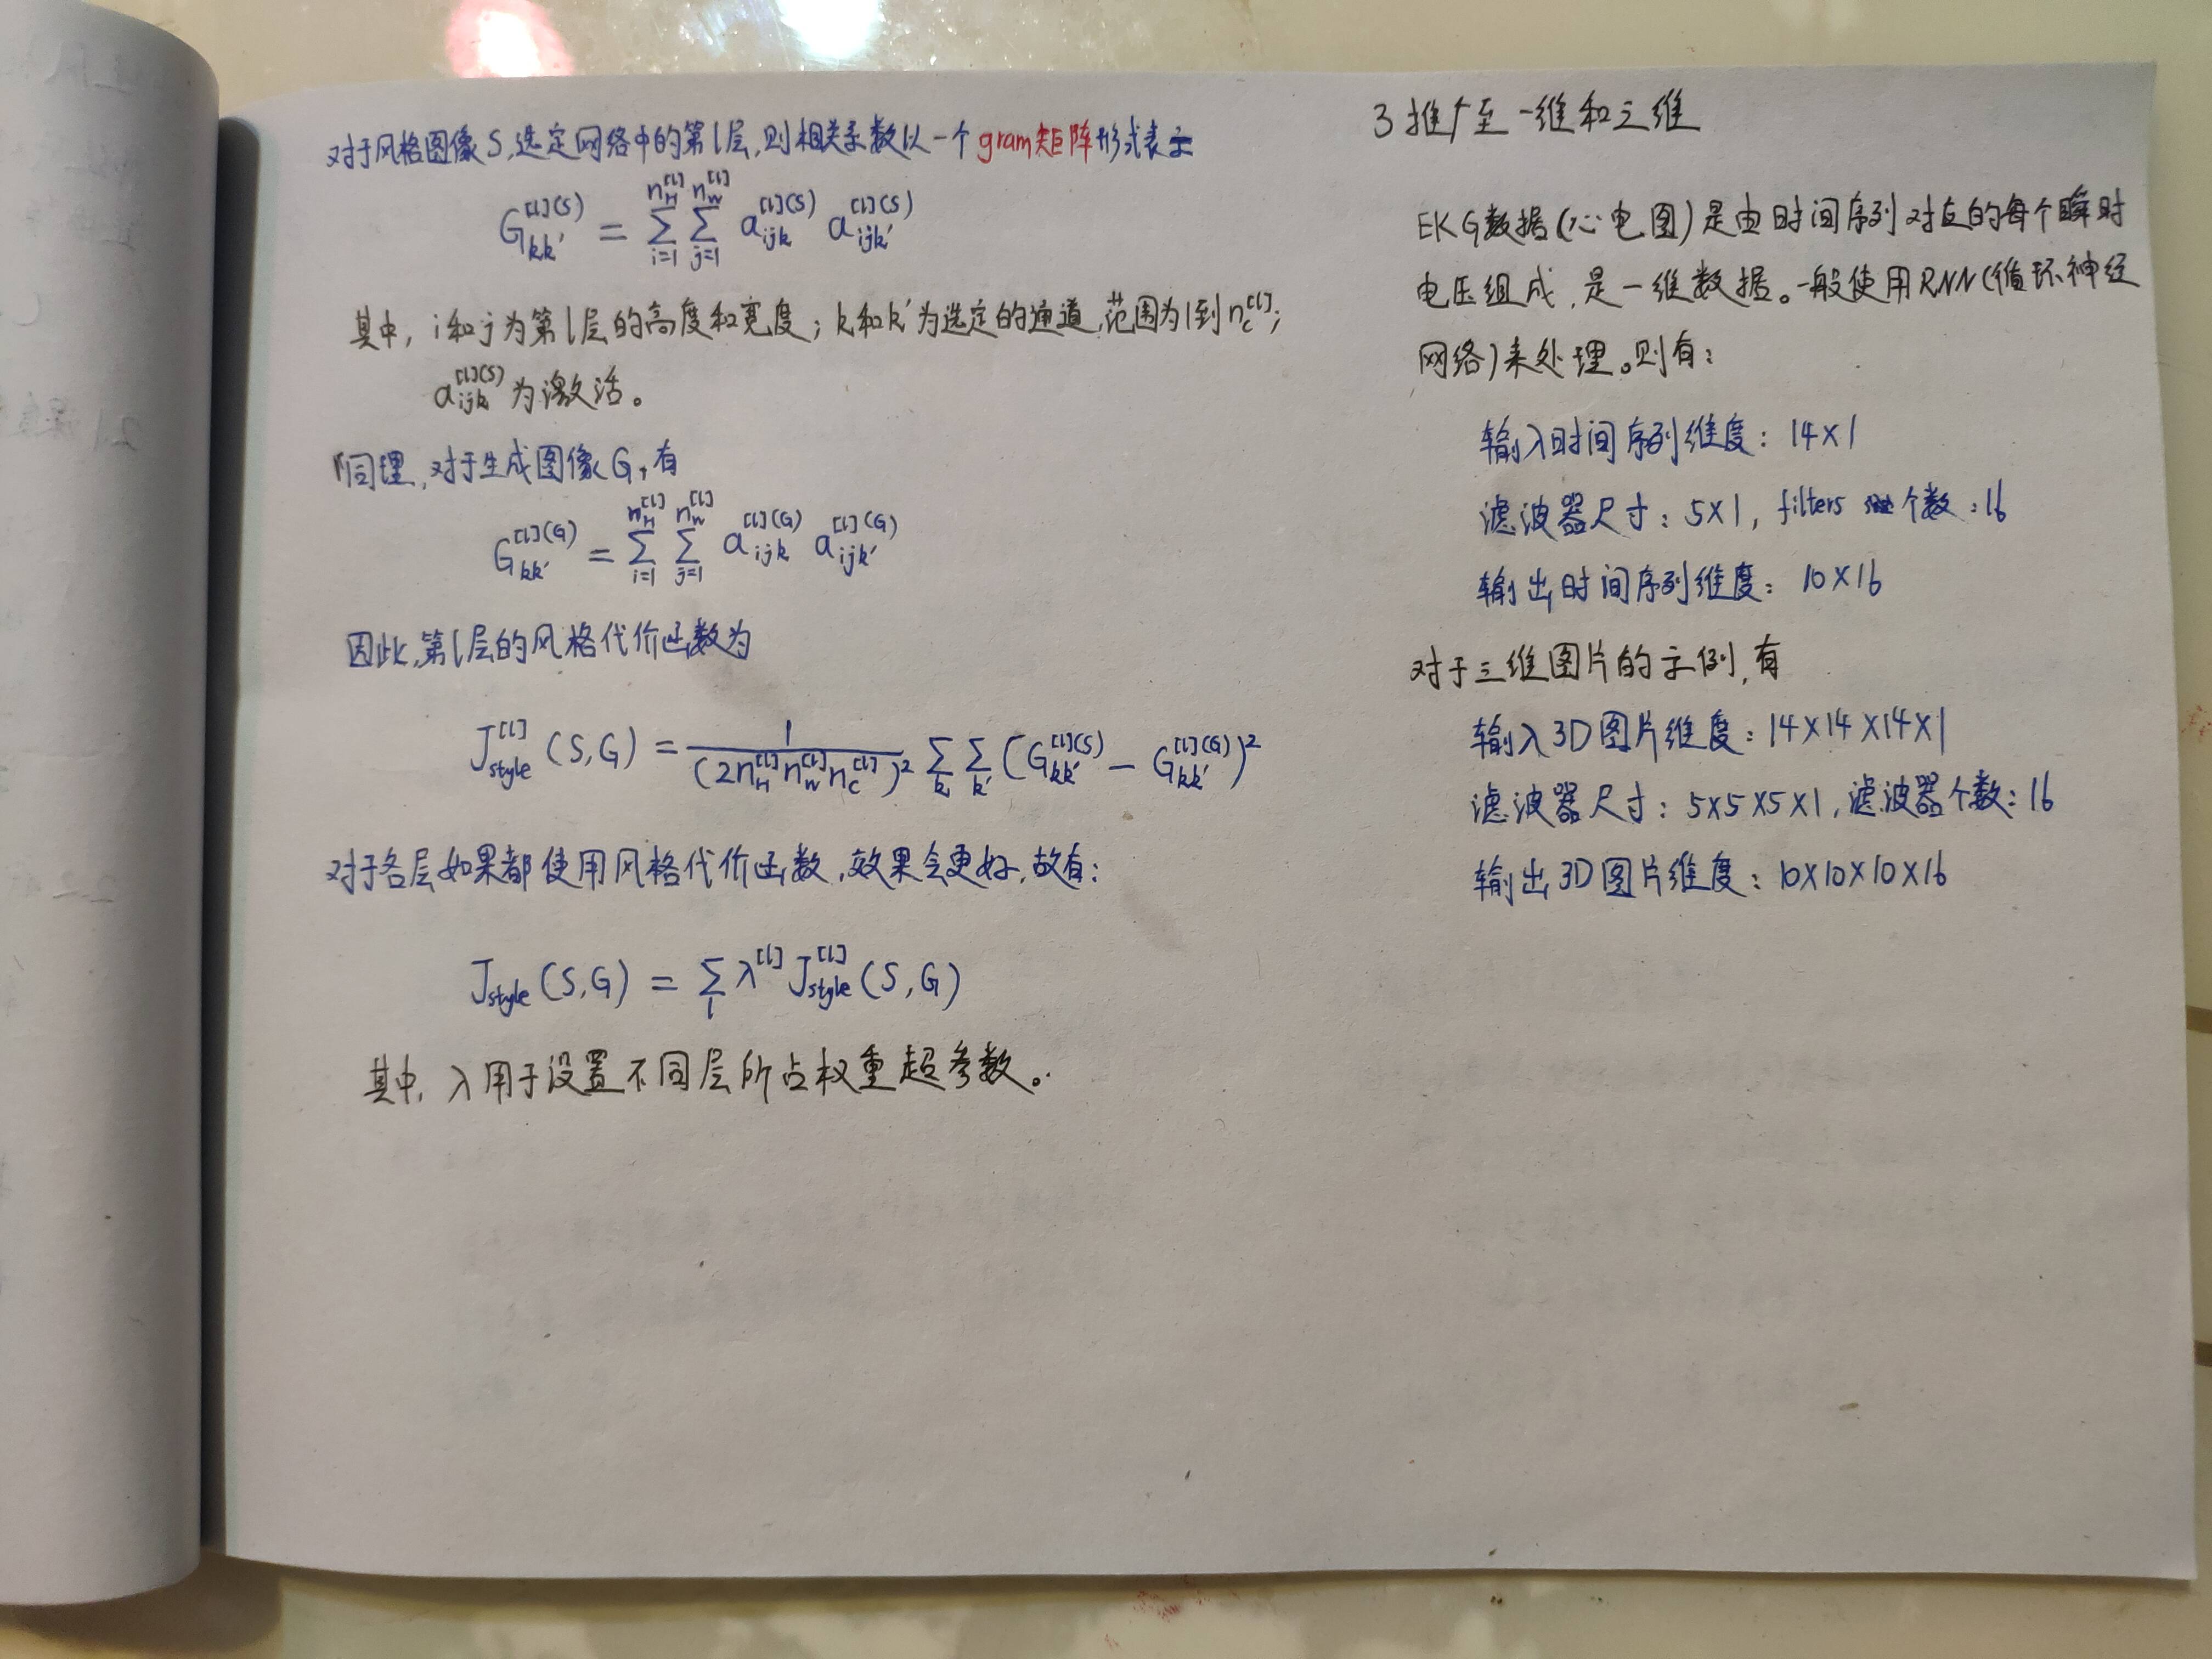 对于风格图像S,选定网络中的第l层,则相关系数以一个gram矩阵形式表示
G_{kk'}^{[l](S)} = \sum_{i=1}^{n_H^{[l]}} \sum_{j=1}^{n_W^{[l]}} a_{ijk}^{[l](S)} a_{ijk'}^{[l](S)}
其中, i和j为第l层的高度和宽度; k和k'为选定的通道,范围为1到n_c^{[l]};
a_{ijk}^{[l](S)}为激活。
同理,对于生成图像G,有
G_{kk'}^{[l](G)} = \sum_{i=1}^{n_H^{[l]}} \sum_{j=1}^{n_W^{[l]}} a_{ijk}^{[l](G)} a_{ijk'}^{[l](G)}
因此,第l层的风格代价函数为
J_{style}^{[l]}(S,G) = \frac{1}{(2n_H^{[l]}n_W^{[l]}n_c^{[l]})^2} \sum_k \sum_{k'} (G_{kk'}^{[l](S)} - G_{kk'}^{[l](G)})^2
对于各层如果都使用风格代价函数,效果会更好,故有:
J_{style}(S,G) = \sum_l λ^{[l]} J_{style}^{[l]}(S,G)
其中, λ用于设置不同层所占权重超参数。
3 推广至一维和三维
EKG数据(心电图)是由时间序列对应的每个瞬时
电压组成,是一维数据。一般使用RNN(循环神经
网络)来处理。则有:
输入时间序列维度: 14×1
滤波器尺寸: 5×1, filters 个数: 16
输出时间序列维度: 10×16
对于三维图片的示例,有
输入3D图片维度: 14×14×14×1
滤波器尺寸: 5×5×5×1,滤波器个数: 16
输出3D图片维度: 10×10×10×16